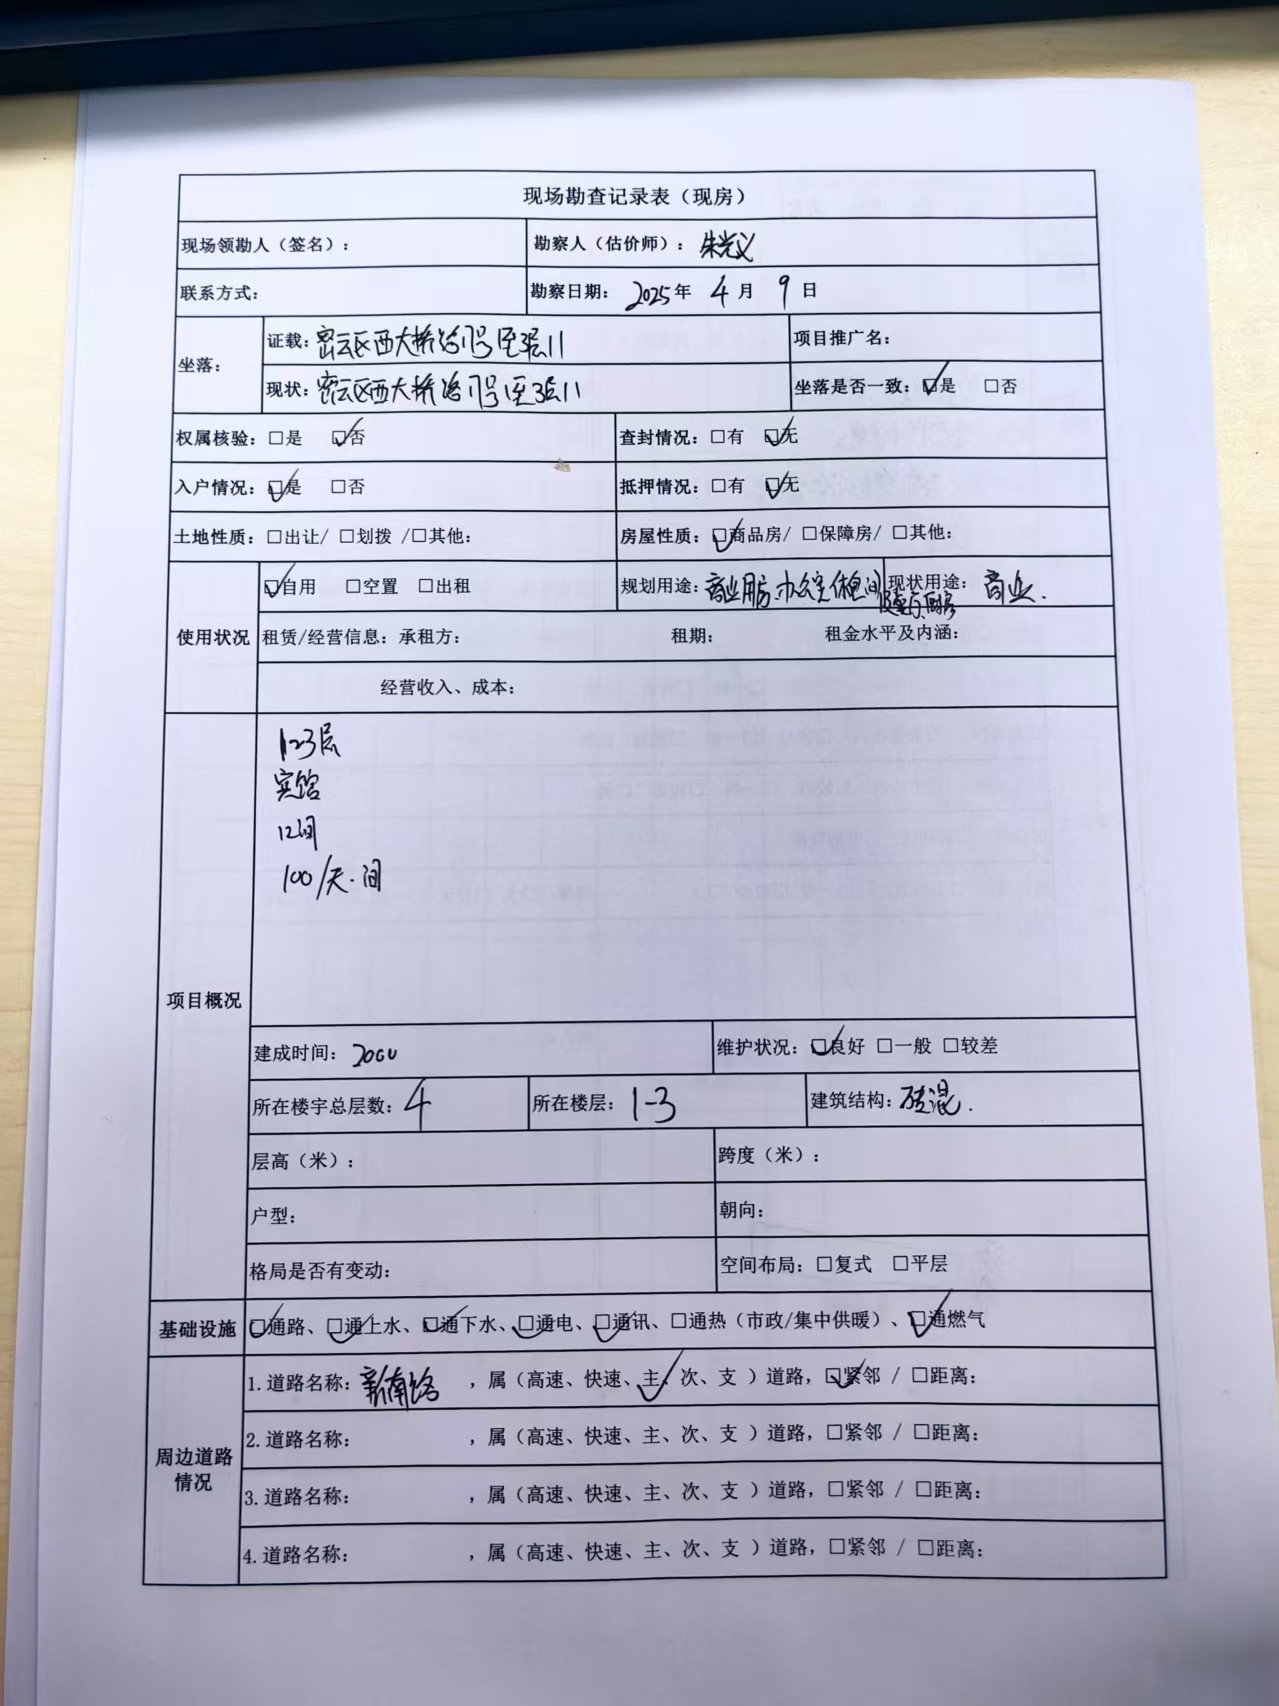 现场勘查记录表（现房）
现场领勘人（签名）： 勘察人（估价师）：朱光义
联系方式： 勘察日期：2025年 4月 9日
坐落： 证载：密云区西大桥路 号 层11 项目推广名：
现状：密云区西大桥路 号 层11 坐落是否一致：☑是 □否
权属核验：□是 ☑否 查封情况：□有 ☑无
入户情况：☑是 □否 抵押情况：□有 ☑无
土地性质：□出让/ □划拨 /□其他： 房屋性质：☑商品房/ □保障房/ □其他：
使用状况 ☑自用 □空置 □出租 规划用途：商业用房.办公室.休息间 现状用途：商业.
租赁/经营信息：承租方： 租期： 租金水平及内涵：
经营收入、成本：
项目概况
1-3层
宾馆
12间
100/天.间
建成时间：2000 维护状况：☑良好 □一般 □较差
所在楼宇总层数：4 所在楼层：1-3 建筑结构：砖混.
层高（米）： 跨度（米）：
户型： 朝向：
格局是否有变动： 空间布局：□复式 □平层
基础设施 ☑通路、☑通上水、☑通下水、☑通电、☑通讯、□通热（市政/集中供暖）、☑通燃气
周边道路情况
1.道路名称：新南路 ，属（高速、快速、主✓、次、支 ）道路，☑紧邻 / □距离：
2.道路名称： ，属（高速、快速、主、次、支 ）道路，□紧邻 / □距离：
3.道路名称： ，属（高速、快速、主、次、支 ）道路，□紧邻 / □距离：
4.道路名称： ，属（高速、快速、主、次、支 ）道路，□紧邻 / □距离：